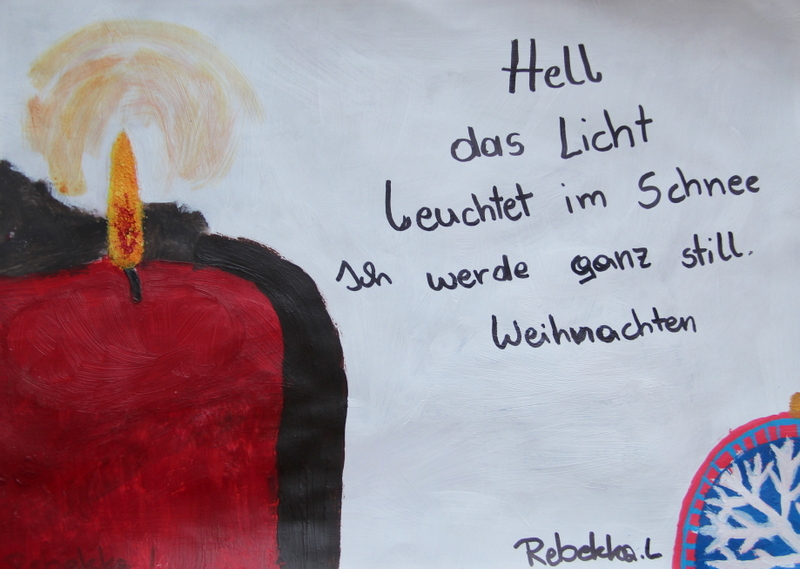 Hell
das Licht
leuchtet im Schnee
Ich werde ganz still.
Weihnachten
Rebekka.L